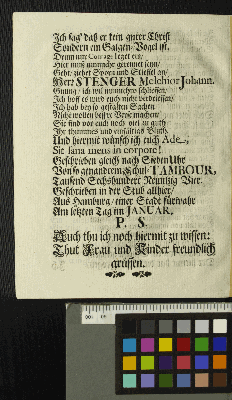 Ich sag' daß er kein guter Christ
Sondern ein Galgen-Vogel ist.
Denn nur Courage legert ein
Hier muß nunmehr gerennet seyn/
Geht/ ziehet Sporn und Stiefel an/
Herr STENGER Melchior Johann.
Gnung/ ich will nunmehro schliessen/
Ich hoff es wird euch nicht verdriessen/
Ich hab bey so gestalten Sachen
Nicht wollen besser Verse machen/
Sie sind vor euch noch viel zu gutt
Ihr thummes und einfältigs Bluth.
Und hiermit wünsch ich euch Ade,
Sic fata meus in corpore!
Geschrieben gleich nach Sieben Uhr
Von so genandtem Schul-TAMBOUR,
Tausend Sechshundert Neuntzig Vier.
Geschrieben in der Stub allhier/
Aus Hamburg/ einer Stadt fürwahr
Am letzten Tag im JANUAR.
P. S.
Auch thu ich noch hiermit zu wissen:
Thut Frau und Kinder freundlich
grüssen.